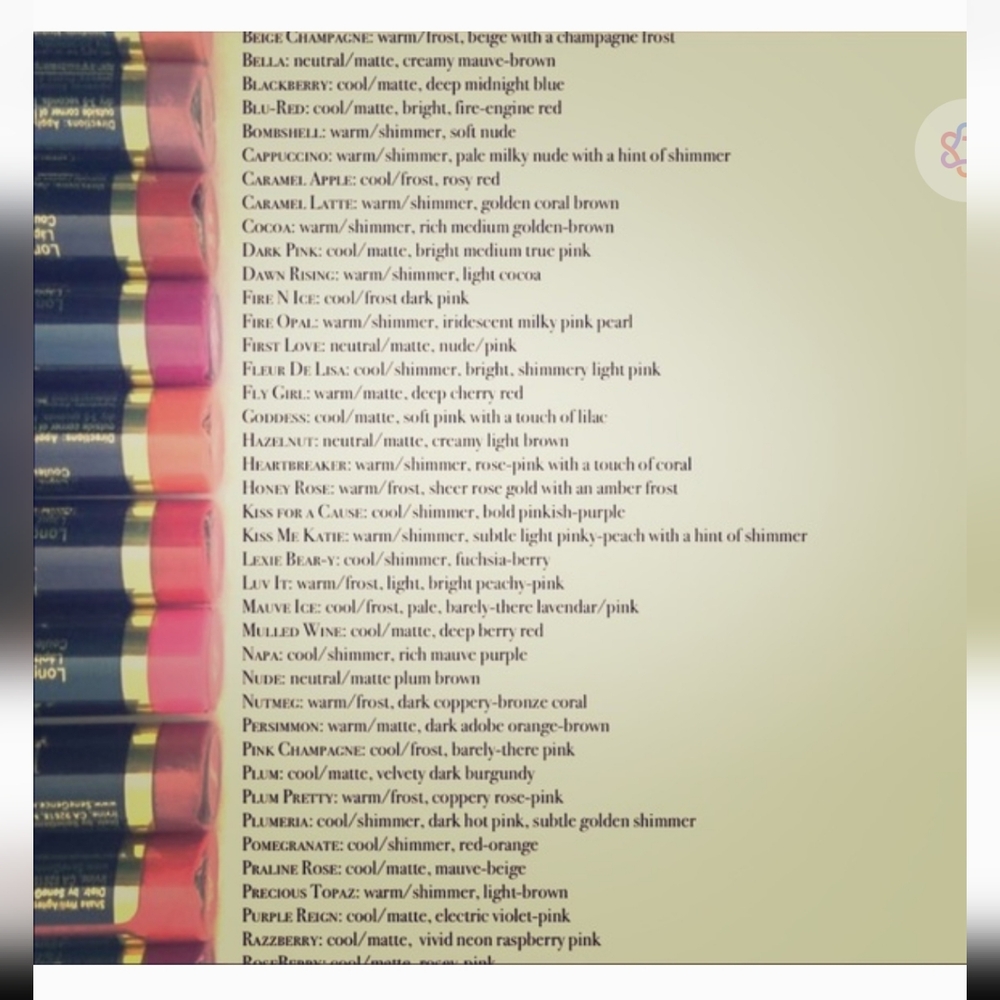 BEIGE CHAMPAGNE: warm/frost, beige with a champagne frost
BELLA: neutral/matte, creamy mauve-brown
BLACKBERRY: cool/matte, deep midnight blue
BLU-RED: cool/matte, bright, fire-engine red
BOMBSHELL: warm/shimmer, soft nude
CAPPUCCINO: warm/shimmer, pale milky nude with a hint of shimmer
CARAMEL APPLE: cool/frost, rosy red
CARAMEL LATTE: warm/shimmer, golden coral brown
COCOA: warm/shimmer, rich medium golden-brown
DARK PINK: cool/matte, bright medium true pink
DAWN RISING: warm/shimmer, light cocoa
FIRE N ICE: cool/frost dark pink
FIRE OPAL: warm/shimmer, iridescent milky pink pearl
FIRST LOVE: neutral/matte, nude/pink
FLEUR DE LISA: cool/shimmer, bright, shimmery light pink
FLY GIRL: warm/matte, deep cherry red
GODDESS: cool/matte, soft pink with a touch of lilac
HAZELNUT: neutral/matte, creamy light brown
HEARTBREAKER: warm/shimmer, rose-pink with a touch of coral
HONEY ROSE: warm/frost, sheer rose gold with an amber frost
KISS FOR A CAUSE: cool/shimmer, bold pinkish-purple
KISS ME KATIE: warm/shimmer, subtle light pinky-peach with a hint of shimmer
LEXIE BEAR-Y: cool/shimmer, fuchsia-berry
LUV IT: warm/frost, light, bright peachy-pink
MAUVE ICE: cool/frost, pale, barely-there lavendar/pink
MULLED WINE: cool/matte, deep berry red
NAPA: cool/shimmer, rich mauve purple
NUDE: neutral/matte plum brown
NUTMEG: warm/frost, dark coppery-bronze coral
PERSIMMON: warm/matte, dark adobe orange-brown
PINK CHAMPAGNE: cool/frost, barely-there pink
PLUM: cool/matte, velvety dark burgundy
PLUM PRETTY: warm/frost, coppery rose-pink
PLUMERIA: cool/shimmer, dark hot pink, subtle golden shimmer
POMEGRANATE: cool/shimmer, red-orange
PRALINE ROSE: cool/matte, mauve-beige
PRECIOUS TOPAZ: warm/shimmer, light-brown
PURPLE REIGN: cool/matte, electric violet-pink
RAZZBERRY: cool/matte, vivid neon raspberry pink
ROSEBERRY: cool/matte, rosey pink